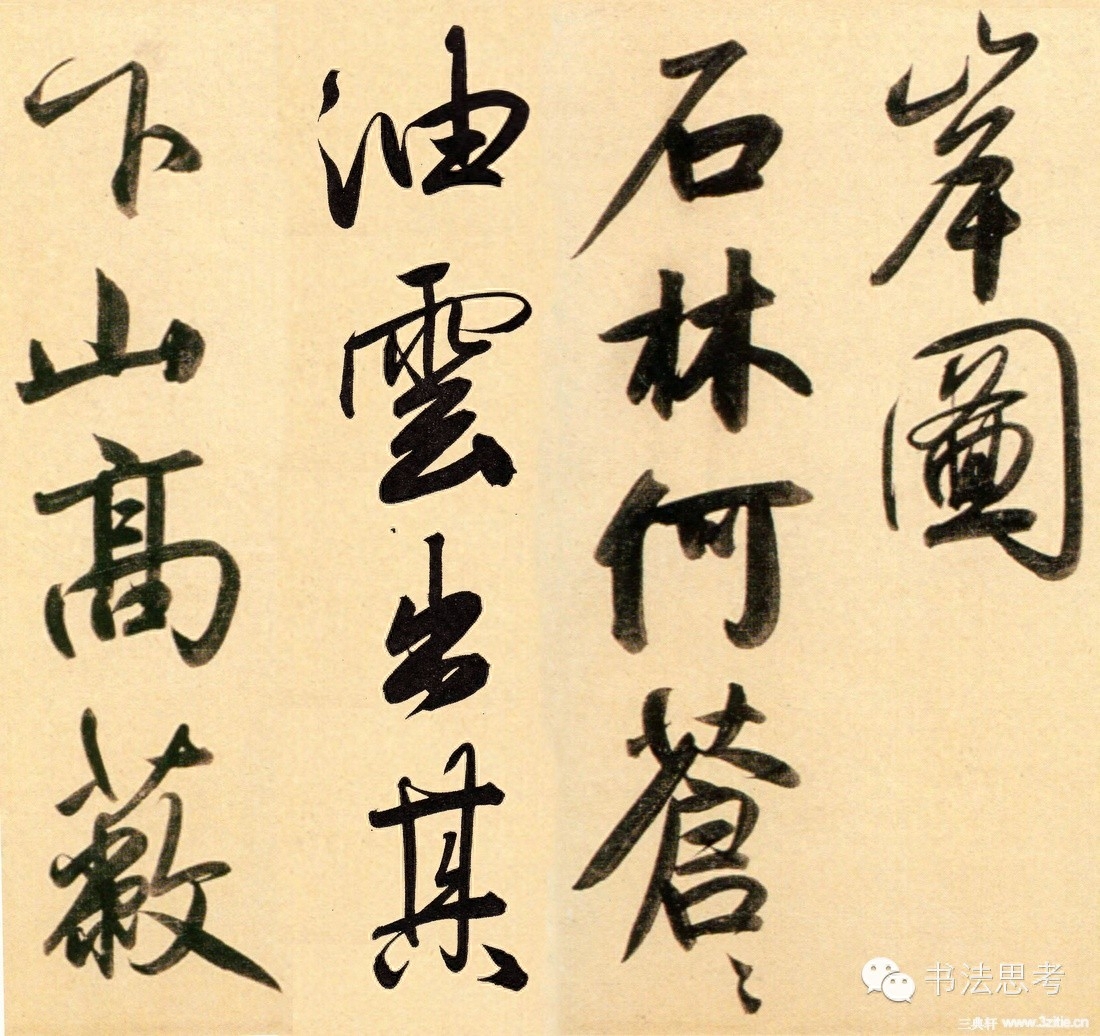 岸圖
石林何蒼〻
油雲出其
下山高蔽
书法思考
三典轩 www.3zitie.cn